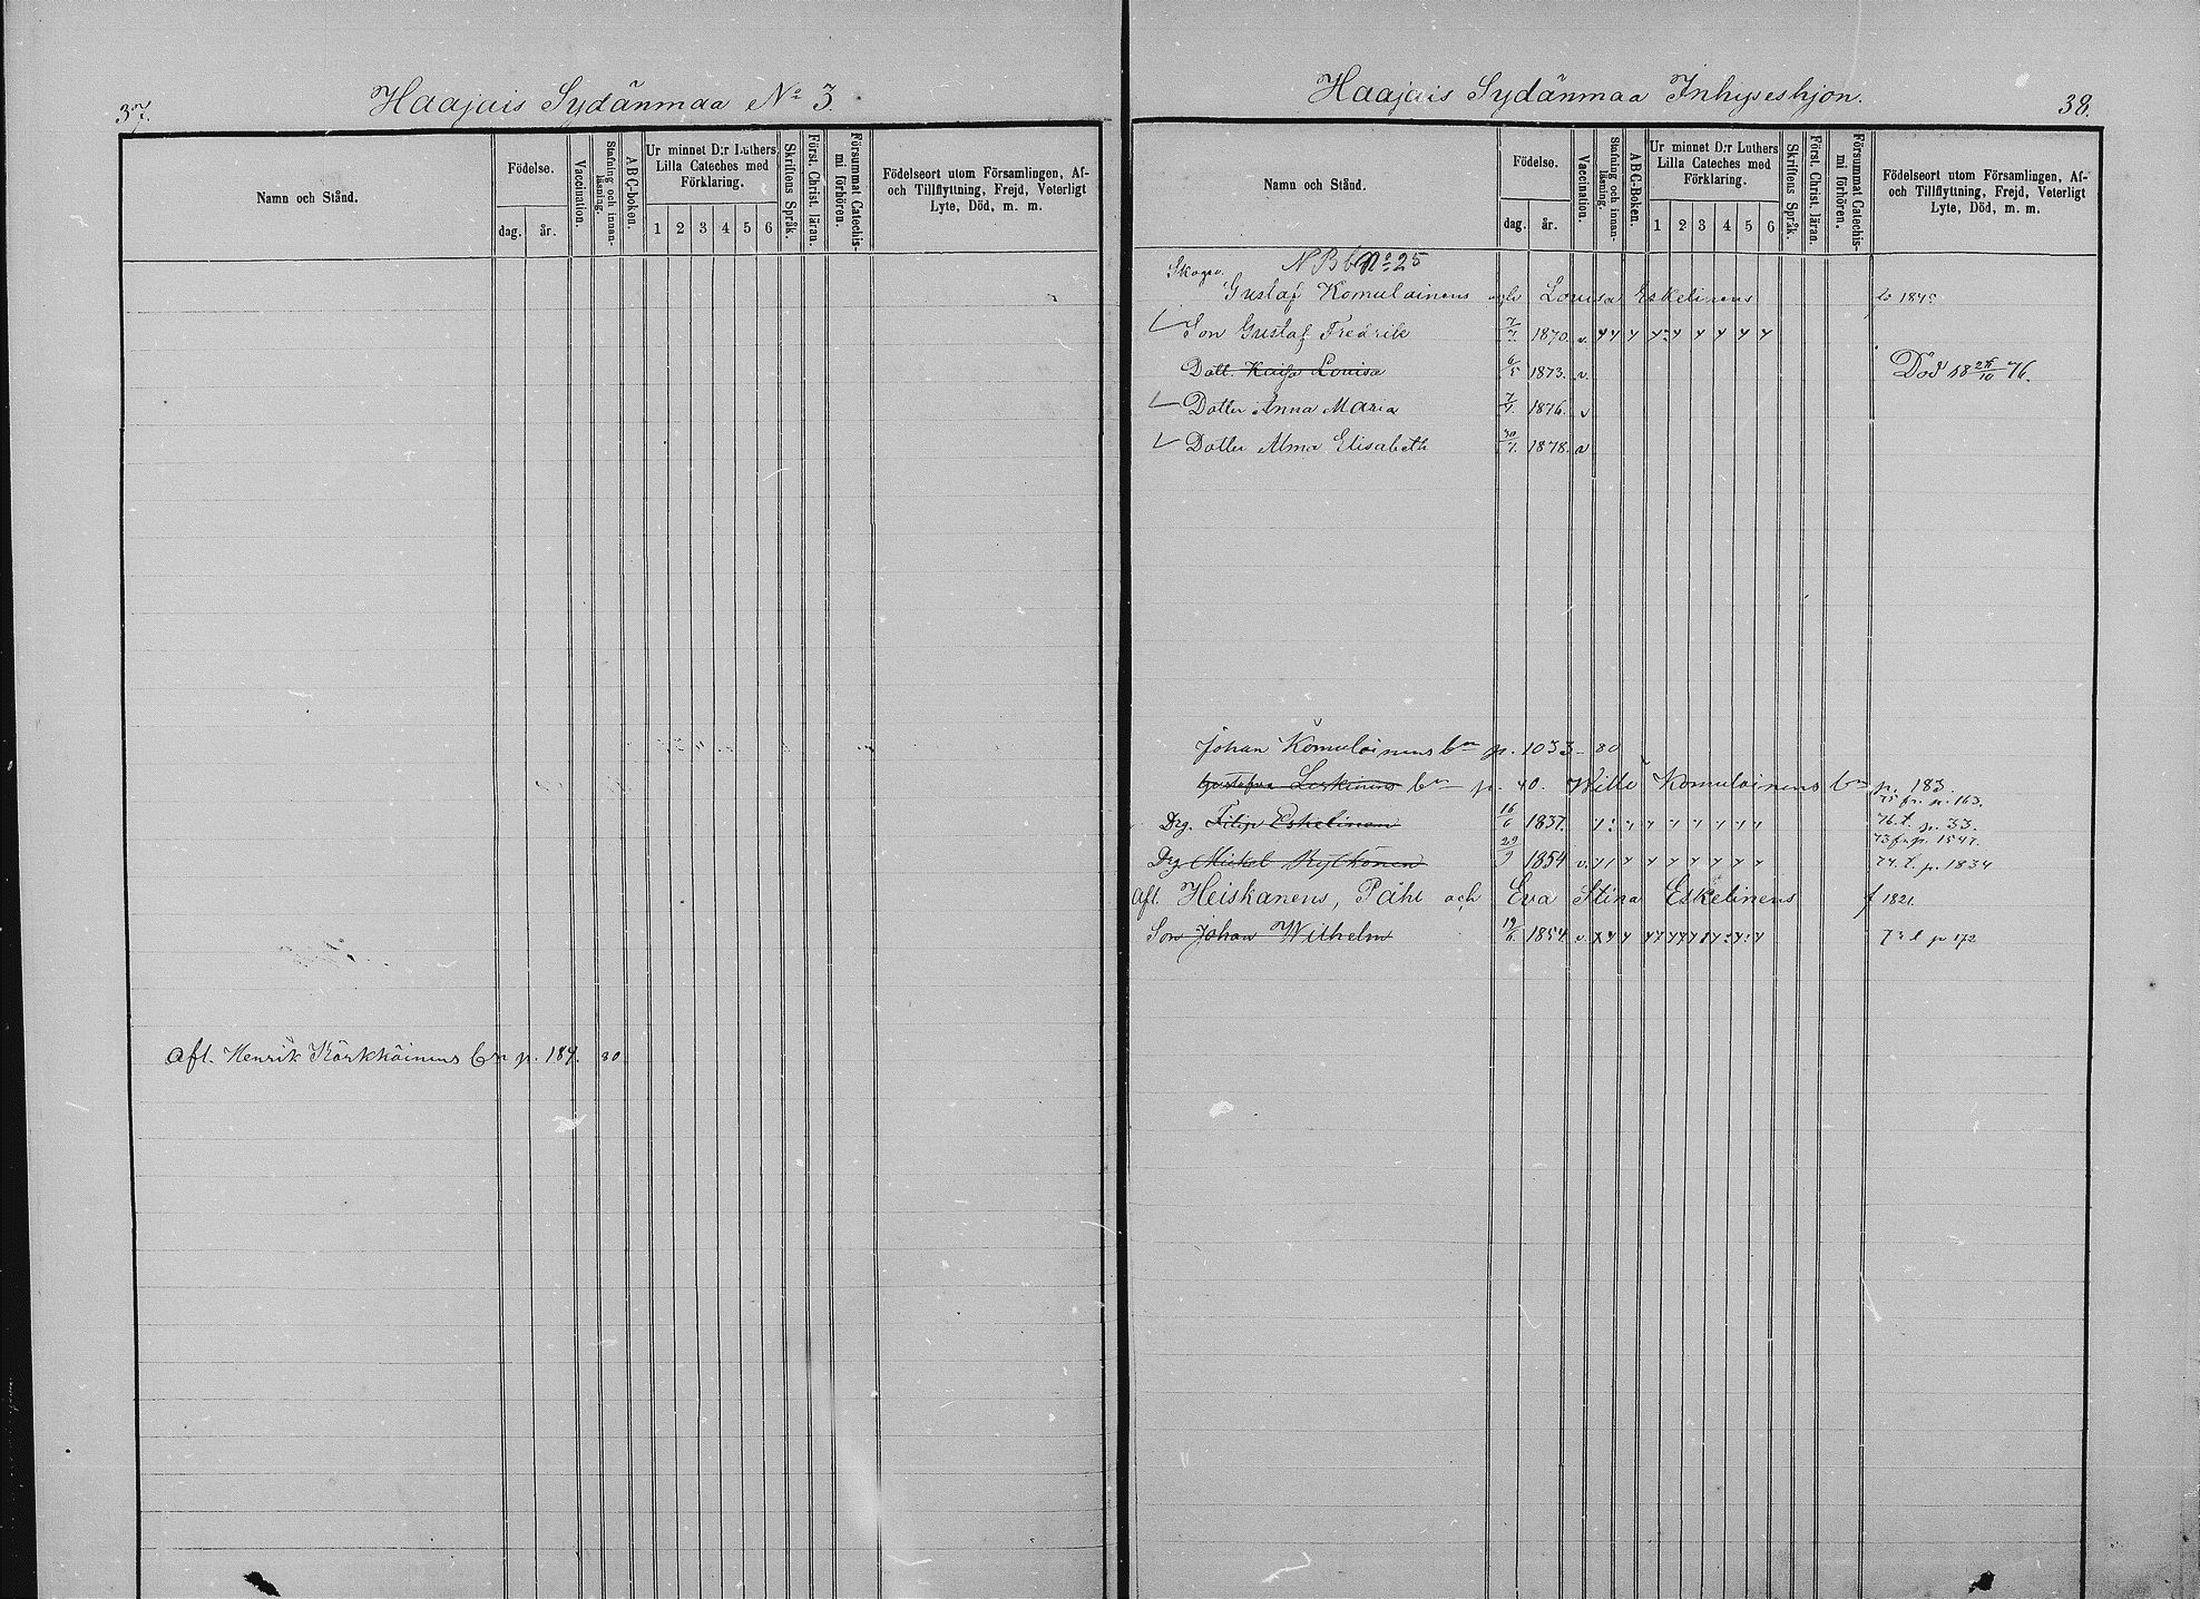 37.
Haajais Sydänmaa No 3.
Namn och Stånd.
Födelse.
dag.
år.
Vaccination.
Stafning och innan-
läsning.
ABC-boken.
Ur minnet D:r Luthers
Lilla Cateches med
Förklaring.
1 2 3 4 5 6
Skriftens Språk.
Först. Christ. läran.
Försummat Catechis-
mi förhören.
Födelseort utom Församlingen, Af-
och Tillflyttning, Frejd, Veterligt
Lyte, Död, m. m.
Afl. Henrik Kärkkäinens bn p. 189. 80
Haajais Sydänmaa Inhyseshjon.
38.
Namn och Stånd.
Födelse.
dag.
år.
Vaccination.
Stafning och innan-
läsning.
ABC-Boken.
Ur minnet D:r Luthers
Lilla Cateches med
Förklaring.
1 2 3 4 5 6
Skriftens Språk.
Först. Christ. läran.
Försummat Catechis-
mi förhören.
Födelseort utom Församlingen, Af-
och Tillflyttning, Frejd, Veterligt
Lyte, Död, m. m.
NB No 25
Gustaf Komulainens och Lovisa Eskelinens
Son Gustaf Fredrik 7/7 1870. v.
Dott. Kaisa Lovisa 6/5 1873. v. Död 18 26/10 76.
Dotter Anna Maria 1876. v
Dotter Alma Elisabeth 30/7 1878. v
Johan Komulainens bn p. 1033 - 80
Leskinens bn p. 40. Wille Komulainens bn p. 183.
75 fr. p. 163.
Drg. Filip Eskelinen 16/6 1837. 76. t. p. 33.
73 fr. p. 1547.
Drg. Mickel Rytkönen 29/9 1854 v. 74. t. p. 1834
Afl. Heiskanens, Påhl och Eva Stina Eskelinens f 1821.
Son Johan Wilhelm 1854 v. p 172